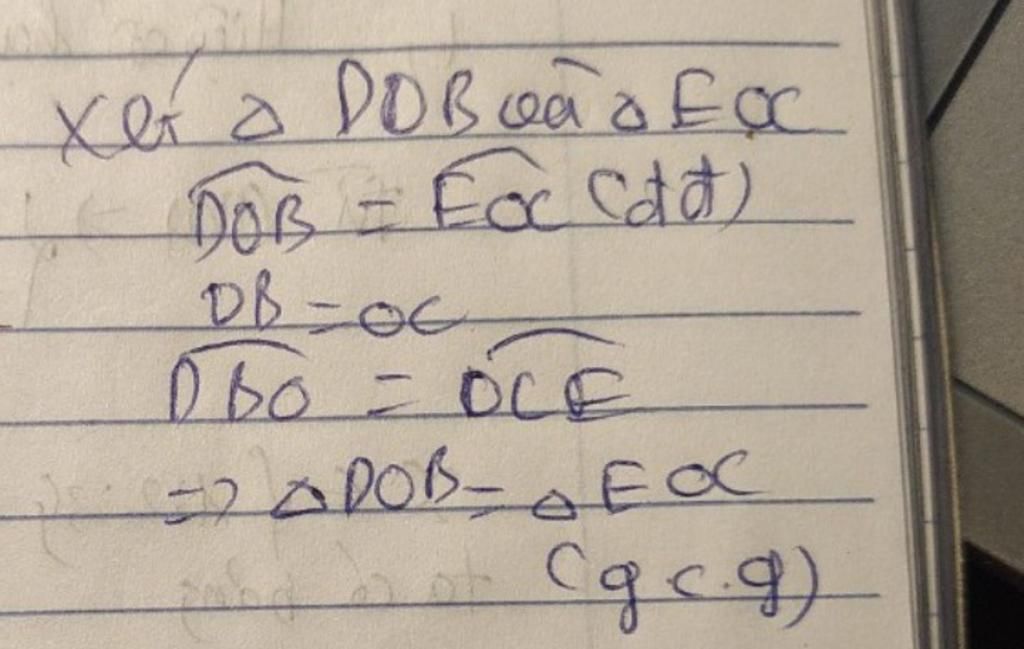 Xét △ DOB và △ EOC
$\widehat{DOB}$ = $\widehat{EOC}$ (đđ)
OB = OC
$\widehat{DBO}$ = $\widehat{OCE}$
=> △ DOB = △ EOC
(g c.g)